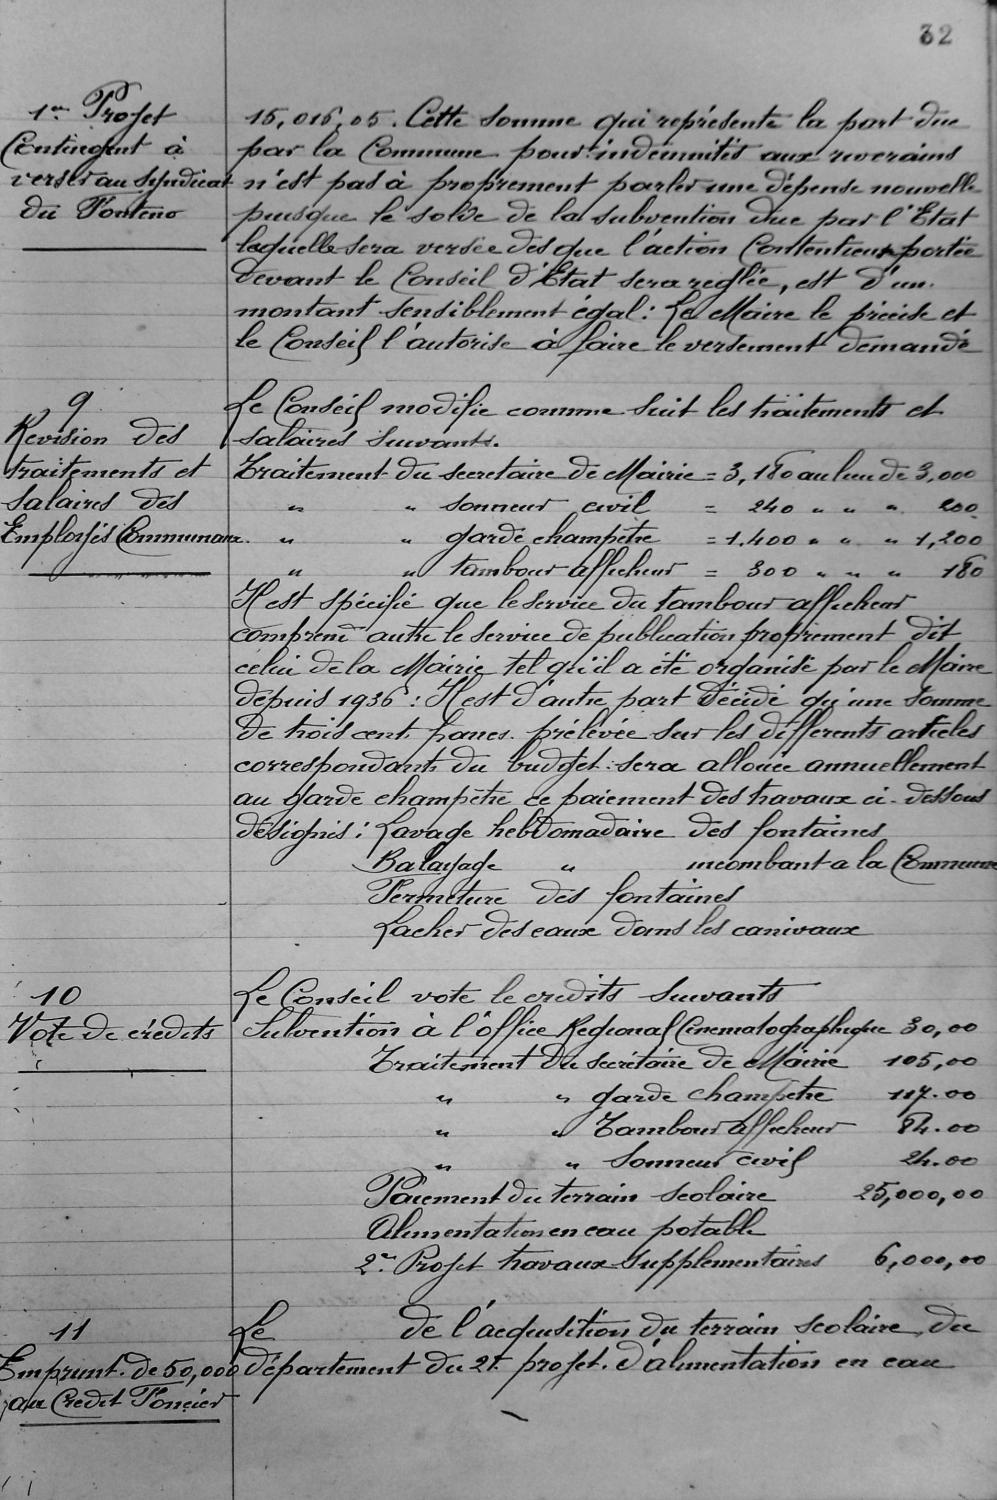 32
1er Projet
Contingent à
verser au Syndicat
du Fonteno
15,016,05. Cette somme qui représente la part due
par la Commune pour indemnités aux riverains
n'est pas à proprement parler une dépense nouvelle
puisque le solde de la subvention due par l'Etat
laquelle sera versée des que l'action Contentieux portée
devant le Conseil d'Etat sera reglée, est d'un
montant sensiblement égal : Le Maire le précise et
le Conseil l'autorise à faire le versement demandé
9
Revision des
traitements et
salaires des
Employés Communaux.
Le Conseil modifie comme suit les traitements et
salaires suivants.
Traitement du secretaire de Mairie = 3,180 au lieu de 3,000
" " sonneur civil = 240 " " " 200
" " garde champêtre = 1.400 " " " 1,200
" " tambour afficheur = 300 " " " 180
Il est spécifié que le service du tambour afficheur
comprend autre le service de publication proprement dit
celui de la Mairie tel qu'il a été organisé par le Maire
depuis 1936 : Il est d'autre part décidé qu'une somme
de trois cent francs prélévée sur les différents articles
correspondants du budget sera allouée annuellement
au garde champêtre ce paiement des travaux ci-dessous
désignés : Lavage hebdomadaire des fontaines
Balayage " incombant a la Commune
Fermeture des fontaines
Lacher des eaux dans les canivaux
10
Vote de crédits
Le Conseil vote le credits suivants
Subvention à l'Office Regional Cinematographique 30,00
Traitement du secrétaire de Mairie 105,00
" " garde champetre 117.00
" " Tambour afficheur 84.00
" " Sonneur civil 24.00
Paiement du terrain scolaire 25,000,00
Alimentation en eau potable
2e Projet travaux supplementaires 6,000,00
11
Emprunt de 50,000
au Credit Foncier
Le de l'acquisition du terrain scolaire, du
département du 2e projet d'alimentation en eau